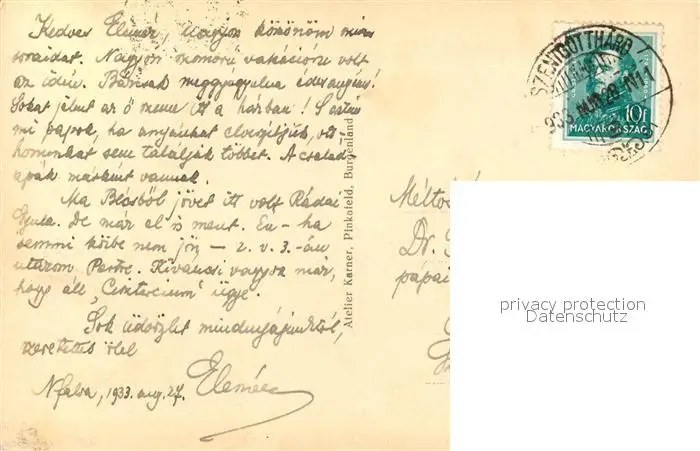 Kedves Elemér, Nagyon köszönöm
soraidat. Nagyon szomorú vakációm volt
az idén. Bátinak meggyógyulva édesanyám!
Sokat jelent az ő neve itt a házban! S aztán
mi papok, ha anyánkat elveszítjük, ott-
honunkat sem találjuk többet. A család-
apák másként vannak.
Ma Bécsből jövet itt volt Rádai
Gyula. De már el is ment. Én - ha
semmi közbe nem jön - 2. v. 3.-án
utazom Pestre. Kíváncsi vagyok már,
hogy áll "Cisztercium" ügye.
Sok üdvözlet mindnyájunktól,
szeretettel ölel
Nfalva, 1933. aug. 27. Elemér
Atelier Karner, Pinkafeld, Burgenland
SZENTGOTTHÁRD
933
10f
MAGYARORSZÁG
Dr.
pápai
privacy protection
Datenschutz